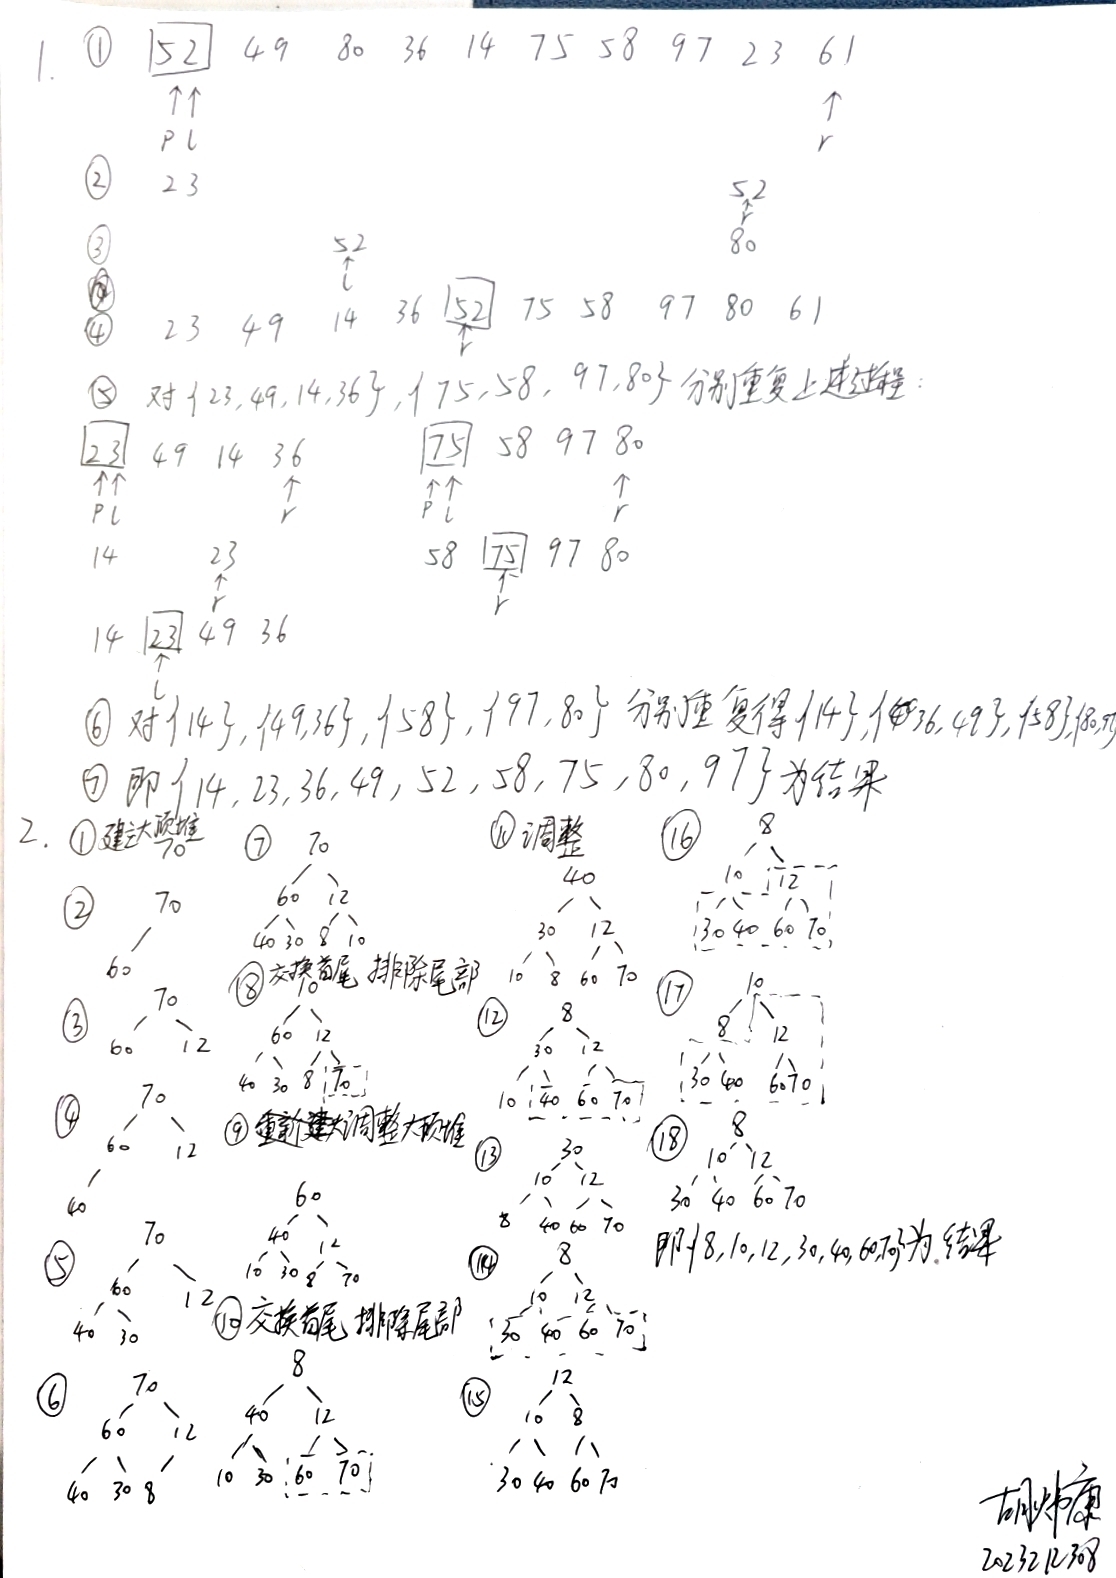 1. ① 52 49 80 36 14 75 58 97 23 61
↑ ↑ ↑
P l r
② 23 52
↑
r
③ 52 80
↑
l
④ 23 49 14 36 52 75 58 97 80 61
↑
r
⑤ 对{23,49,14,36},{75,58,97,80}分别重复上述过程:
23 49 14 36 75 58 97 80
↑ ↑ ↑ ↑ ↑ ↑
P l r P l r
14 23 58 75 97 80
↑ ↑
r r
14 23 49 36
↑
l
⑥ 对{14},{49,36},{58},{97,80}分别重复得{14},{36,49},{58},{80,97}
⑦ 即{14,23,36,49,52,58,75,80,97}为结果
2. ①建大顶堆
70
② 70
60
③ 70
60 12
④ 70
60 12
40
⑤ 70
60 12
40 30
⑥ 70
60 12
40 30 8
⑦ 70
60 12
40 30 8 10
⑧ 交换首尾 排除尾部
10
60 12
40 30 8 70
⑨ 重新调整大顶堆
60
40 12
10 30 8 70
⑩ 交换首尾 排除尾部
8
40 12
10 30 60 70
⑪ 调整
40
30 12
10 8 60 70
⑫ 8
30 12
10 40 60 70
⑬ 30
10 12
8 40 60 70
⑭ 8
10 12
30 40 60 70
⑮ 12
10 8
30 40 60 70
⑯ 8
10 12
30 40 60 70
⑰ 10
8 12
30 40 60 70
⑱ 8
10 12
30 40 60 70
即{8,10,12,30,40,60,70}为结果
胡炜康
2023212308